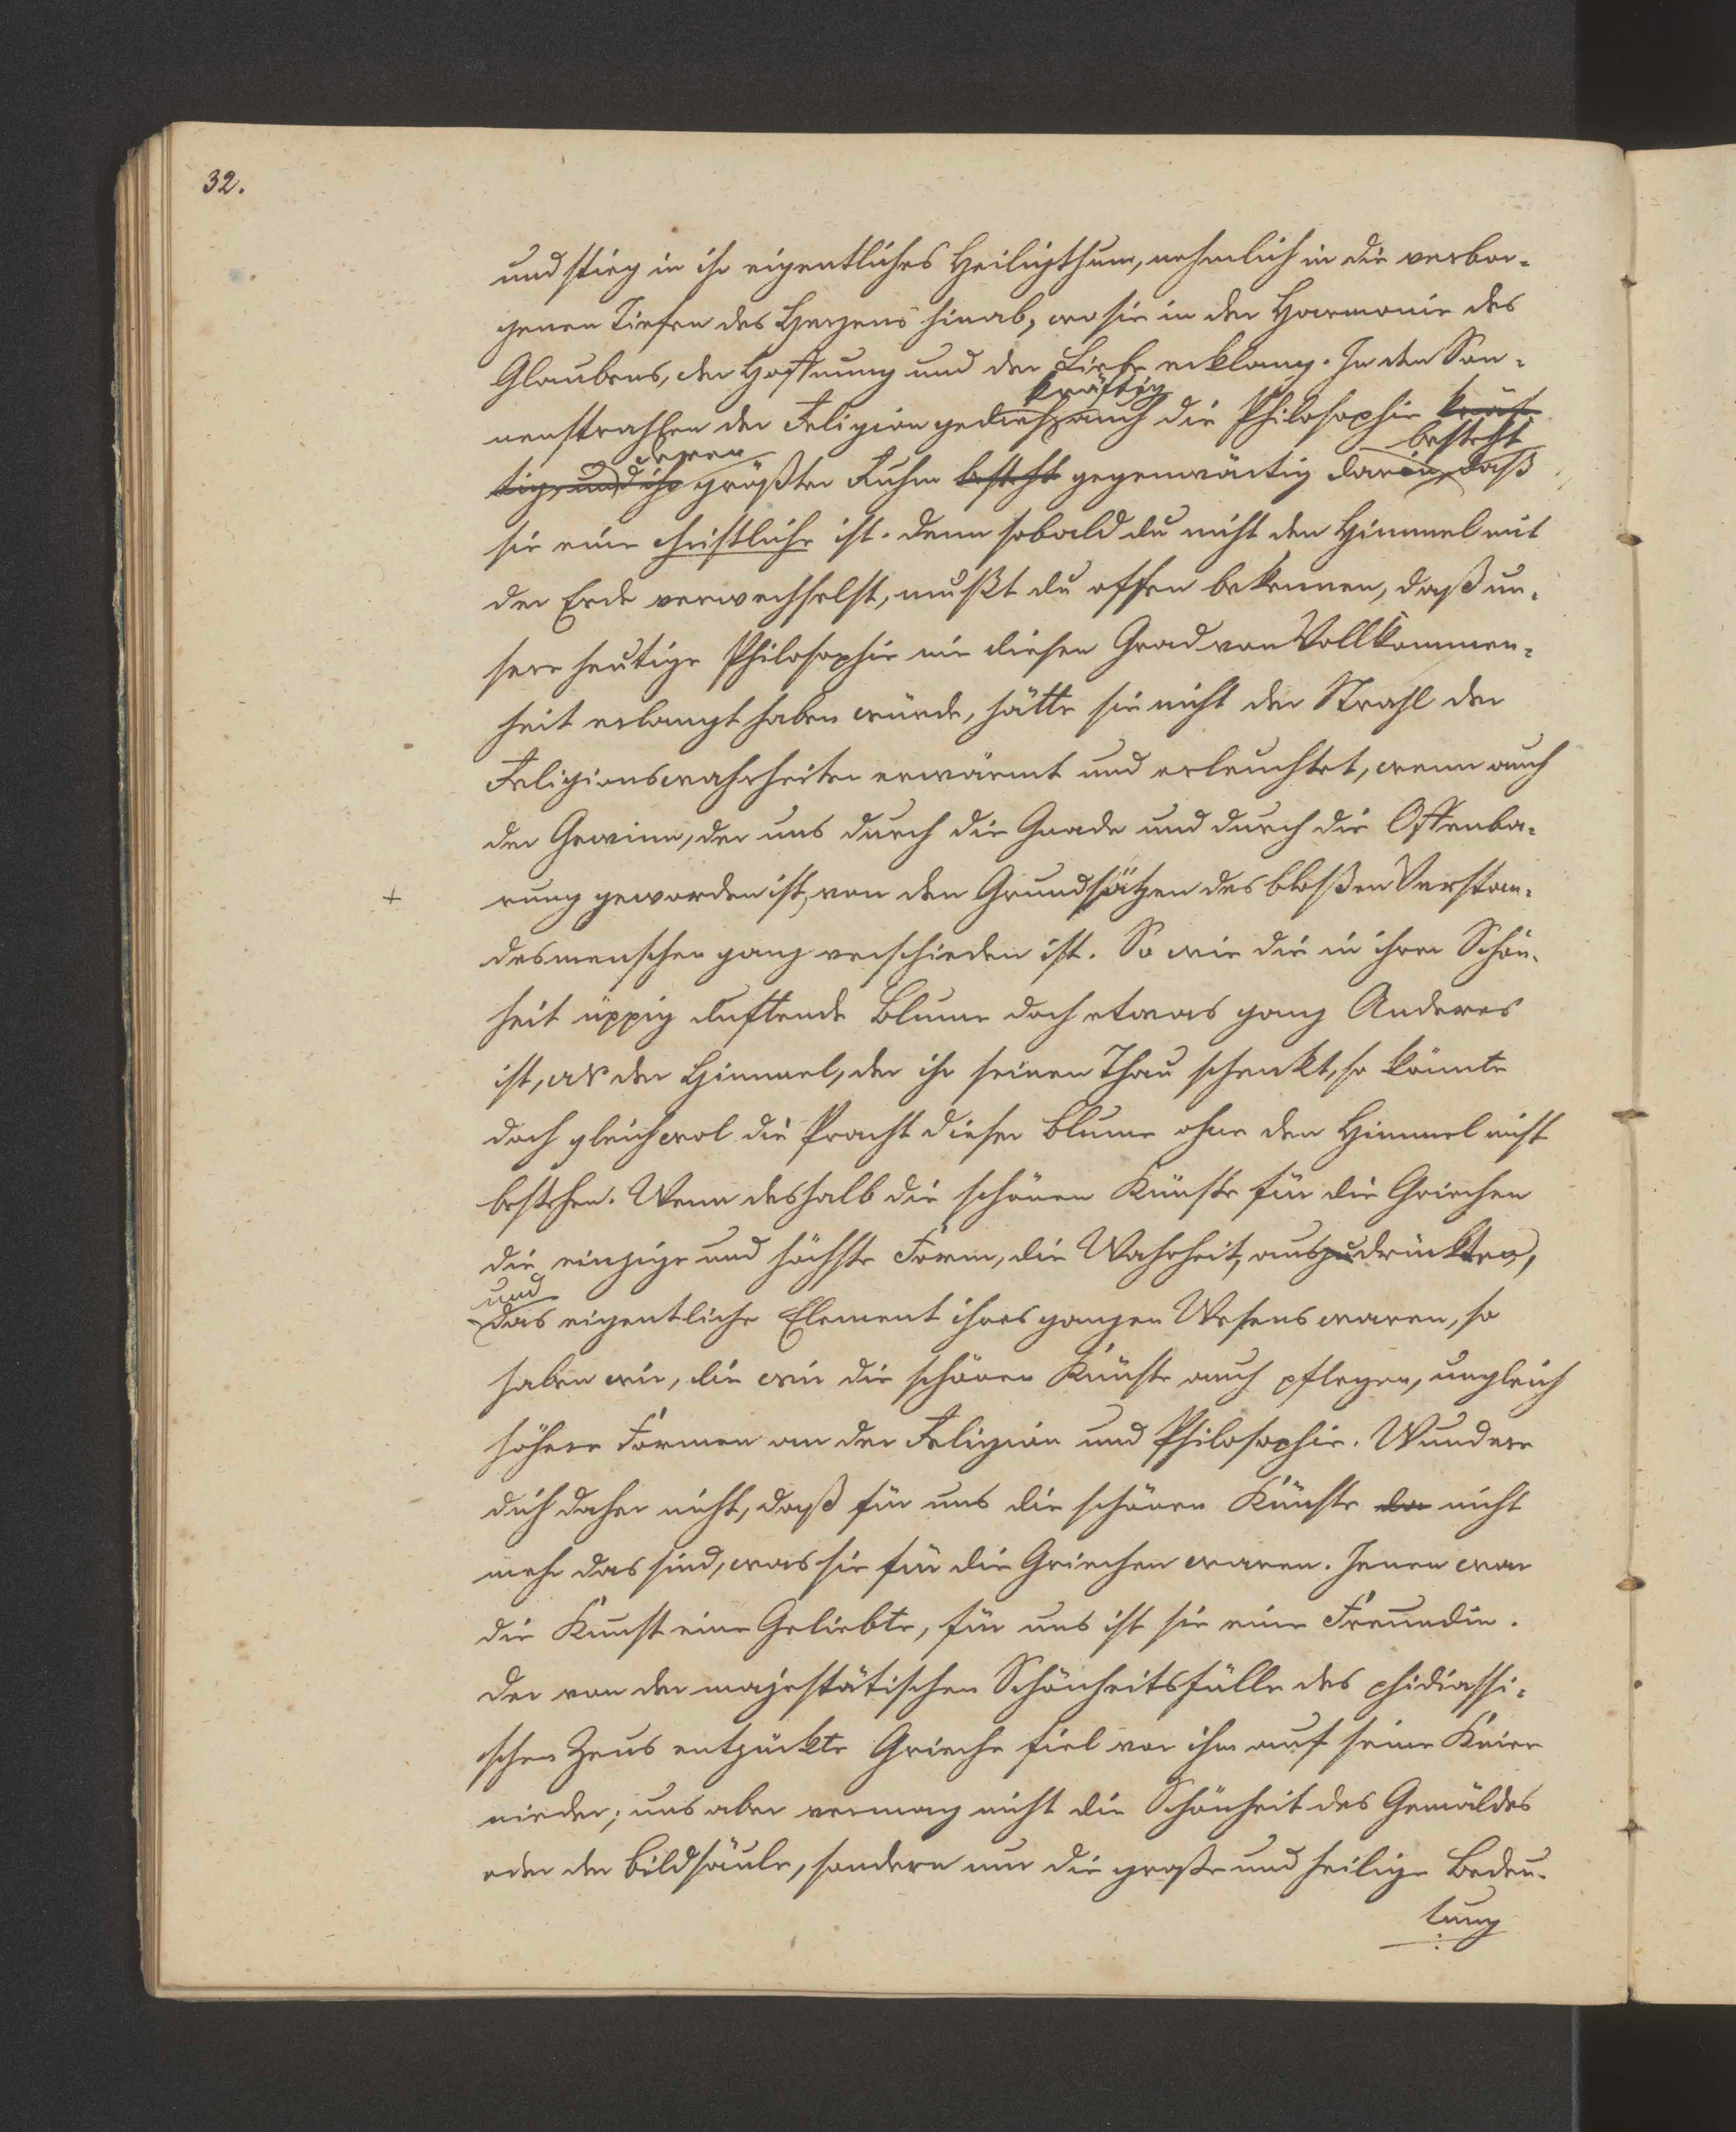 32.
und stieg in ihr eigentliches Heiligthum, nehmlich in die verbor-
genen Tiefen des Herzens hinab, wo sie in der Harmonie des
Glaubens, der Hoffnung und der Liebe erklang. In den Son-
kräftig
nenstrahlen der Religion gedieh auch die Philosophie kräf-
deren besteht
tig, und ihr größter Ruhm besteht gegenwärtig darin, daß
sie eine christliche ist. Denn sobald du nicht den Himmel mit
der Erde verwechselst, mußt du offen bekennen, daß un-
sere heutige Philosophie nie diesen Grad von Vollkommen-
heit erlangt haben würde, hätte sie nicht der Strahl der
Religionswahrheiten erwärmt und erleuchtet, wenn auch
der Gewinn, der uns durch die Gnade und durch die Offenba-
+ rung geworden ist, von den Grundsätzen des bloßen Verstan-
desmenschen ganz verschieden ist. So wie die in ihrer Schön-
heit üppig duftende Blume doch etwas ganz Anderes
ist, als der Himmel, der ihr seinen Thau schenkt, so könnte
doch gleichwol die Pracht dieser Blume ohne den Himmel nicht
bestehen. Wenn deshalb die schönen Künste für die Griechen
die einzige und höchste Form, die Wahrheit, auszudrückten,
und
das eigentliche Element ihres ganzen Wesens waren, so
haben wir, die wir die schönen Künste auch pflegen, ungleich
höhere Formen an der Religion und Philosophie. Wundere
dich daher nicht, daß für uns die schönen Künste da nicht
mehr das sind, was sie für die Griechen waren. Jenen war
die Kunst eine Geliebte, für uns ist sie eine Freundin.
Der von der majestätischen Schönheitsfülle des phidiassi-
schen Zeus entzückte Grieche fiel vor ihm auf seine Kniee
nieder; uns aber vermag nicht die Schönheit des Gemäldes
oder der Bildsäule, sondern nur die große und heilige Bedeu-
tung